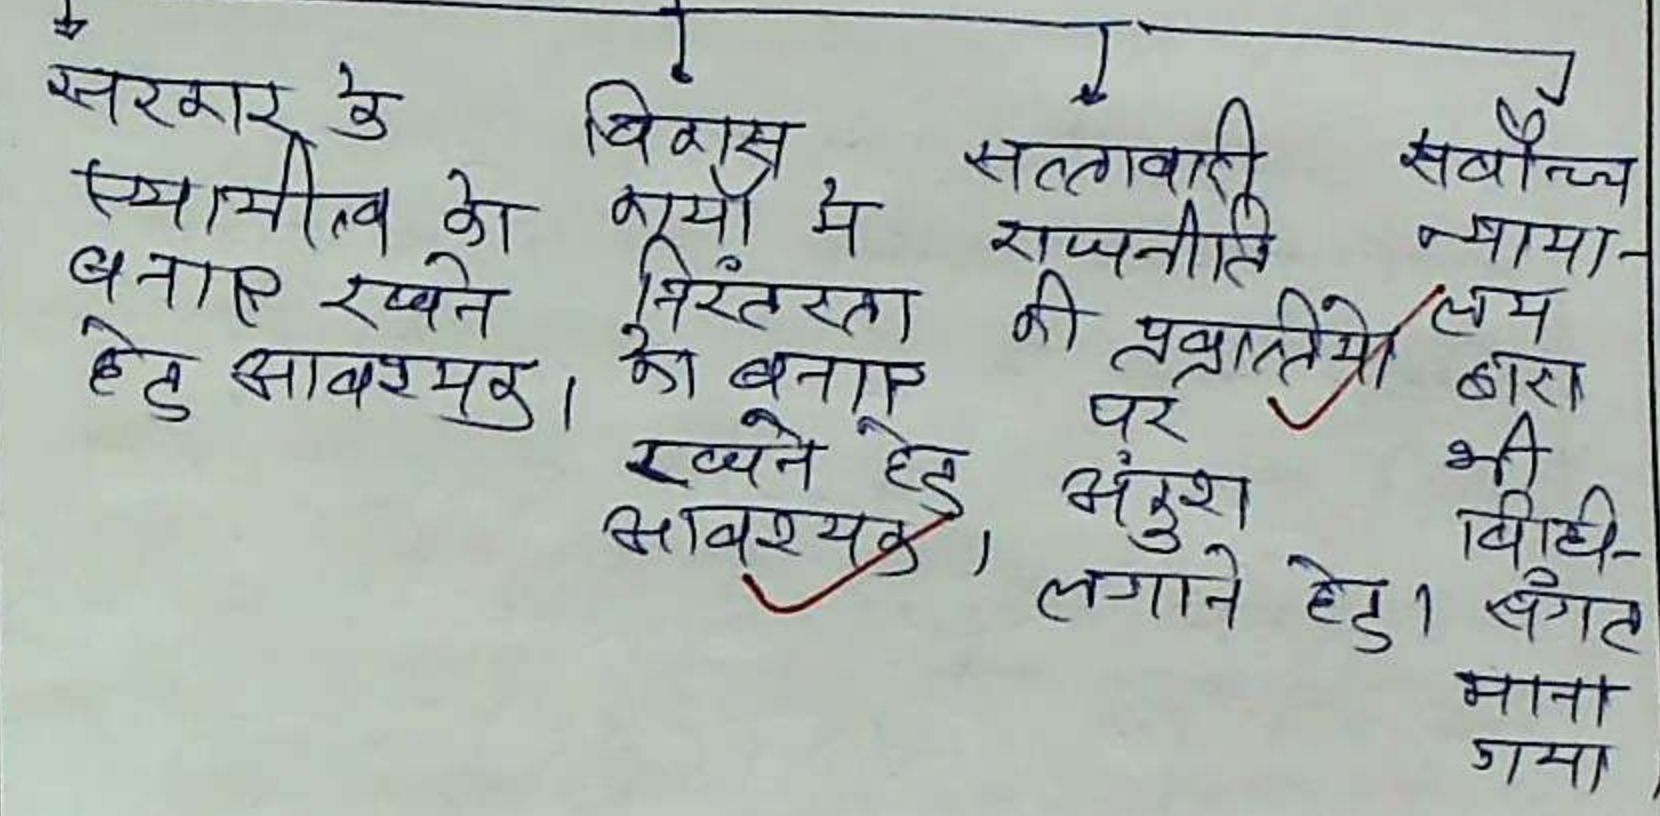 सरकार के
स्थामीत्व को
बनाए रखने
हेतु आवश्यक।
विकास
कार्यों मे
निरंतरता
को बनाए
रखने हेतु
आवश्यक।
सत्तावादी
राजनीति
की प्रवृत्तियों
पर
अंकुश
लगाने हेतु।
सर्वोच्च
न्याया-
लय
द्वारा
भी
विधि-
संगत
माना
गया।